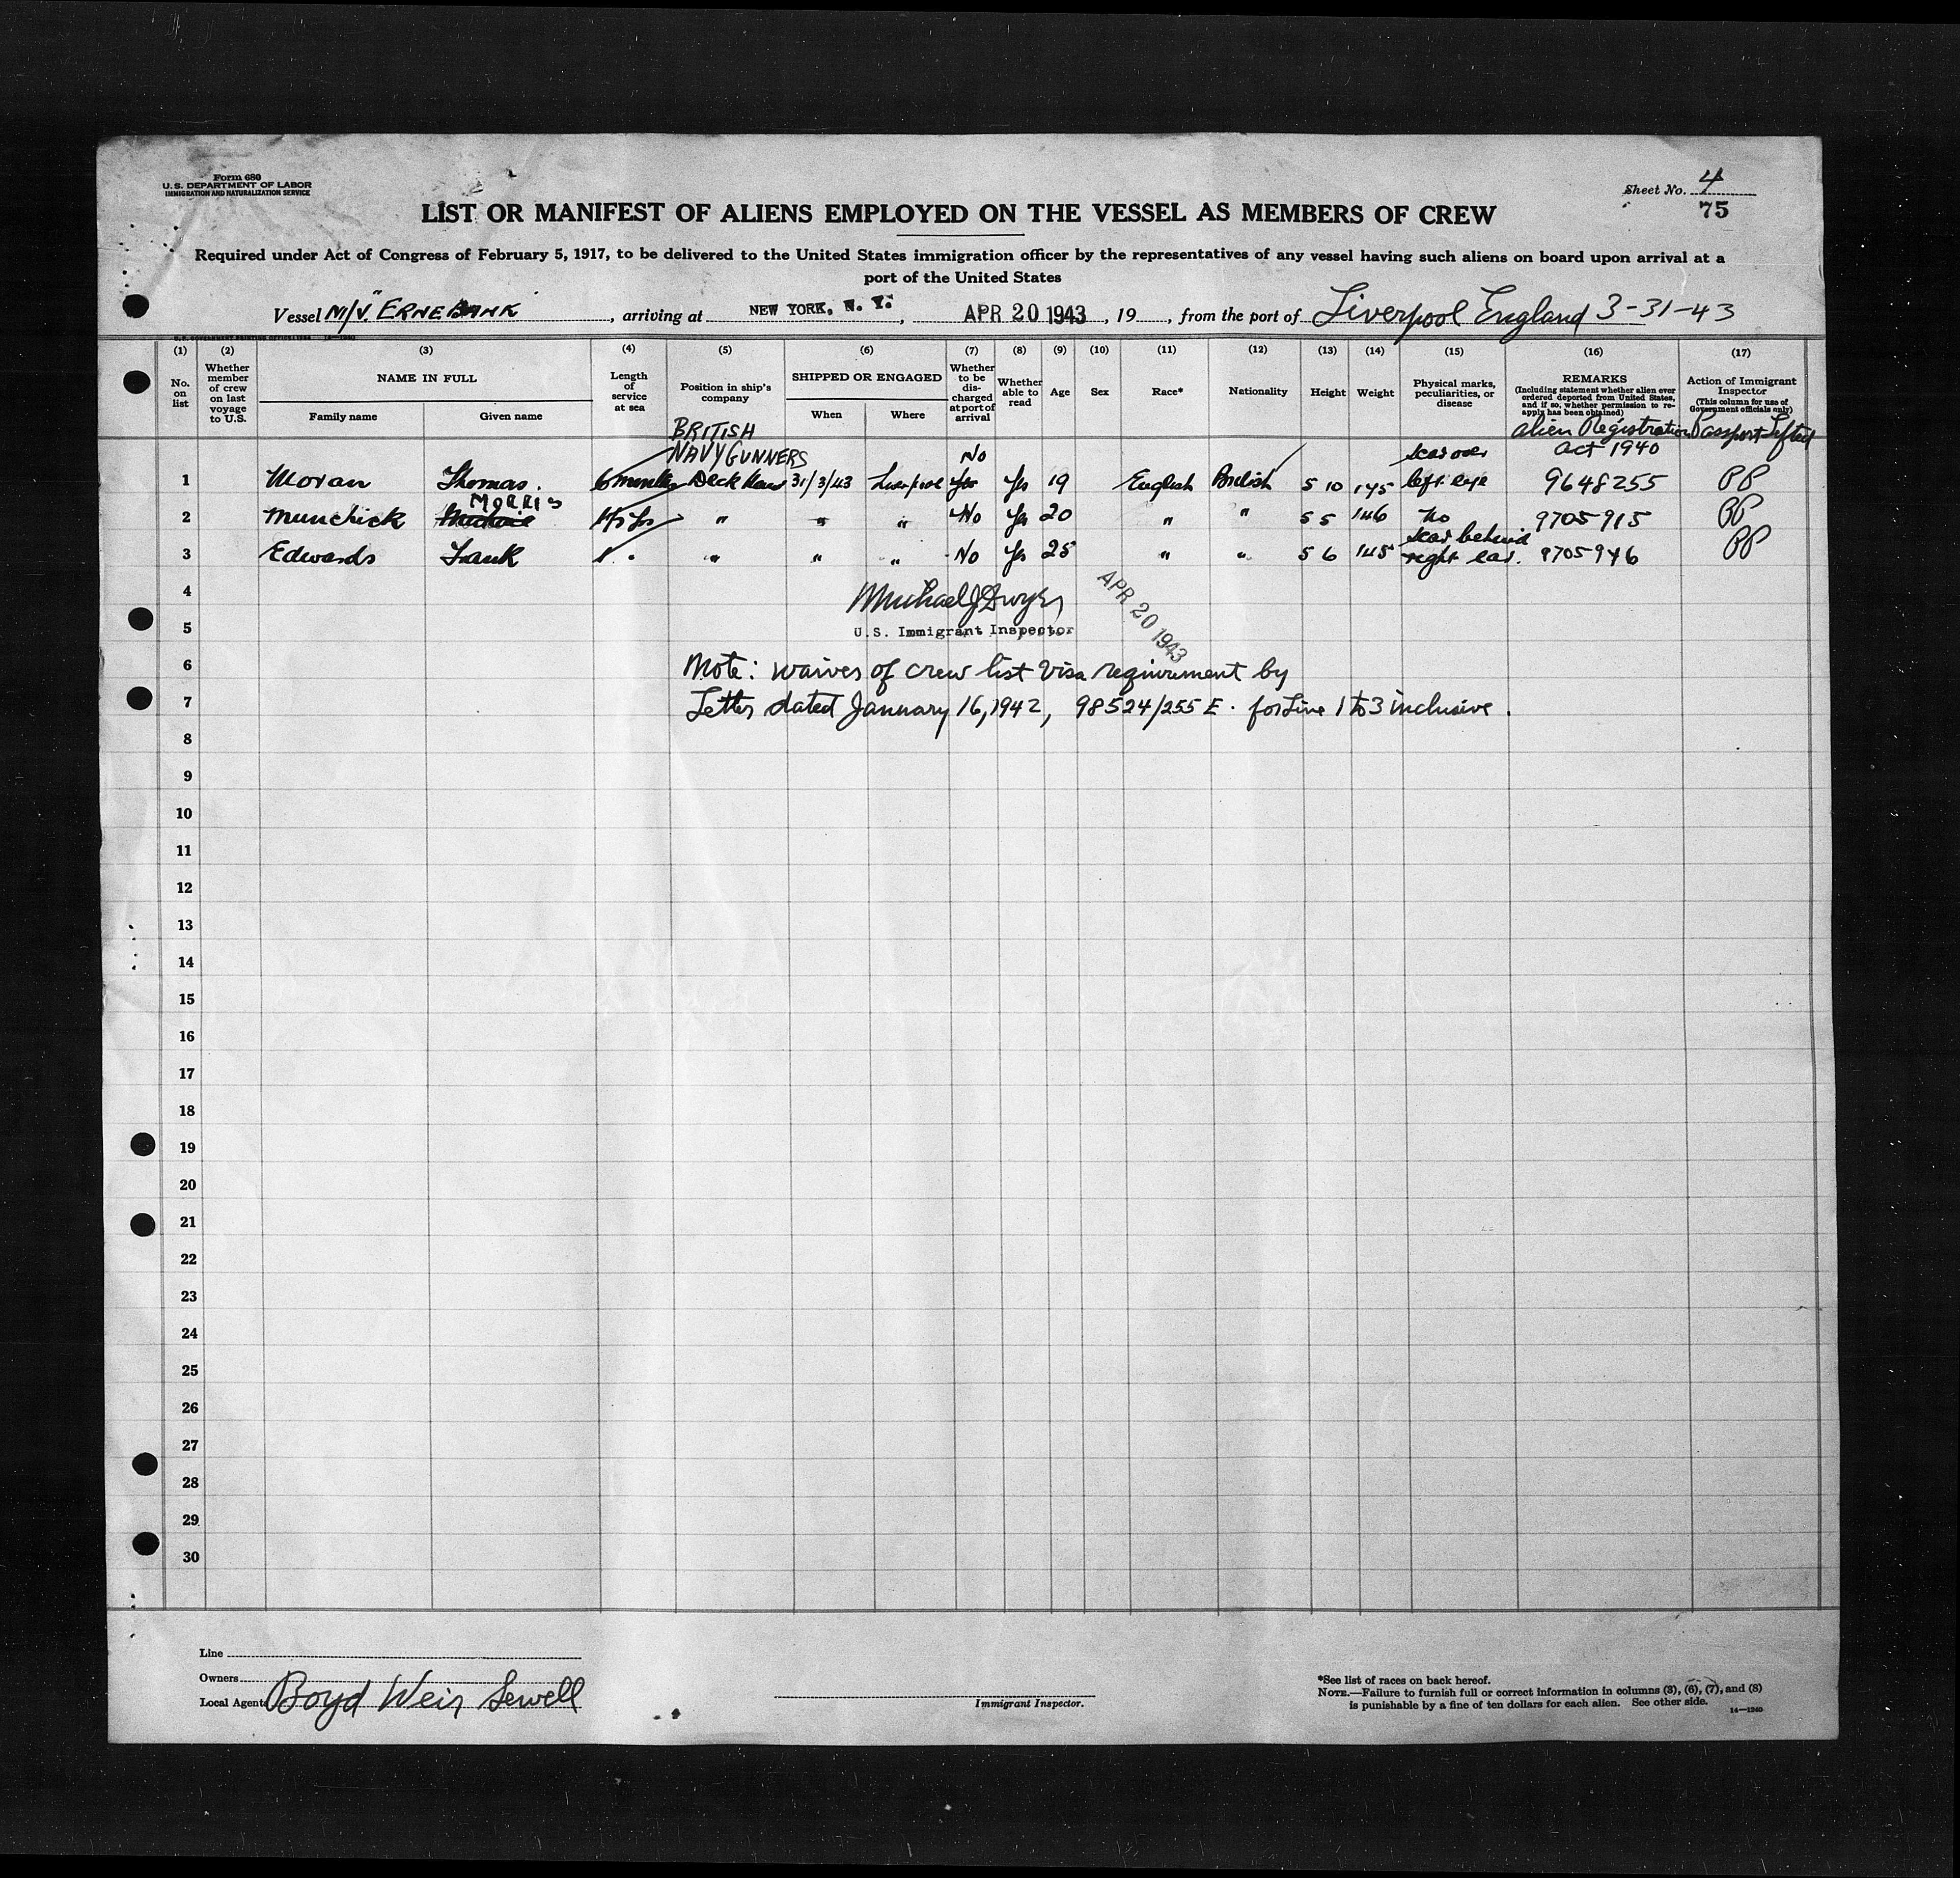 Form 680
U.S. DEPARTMENT OF LABOR
IMMIGRATION AND NATURALIZATION SERVICE
Sheet No. 4
75
LIST OR MANIFEST OF ALIENS EMPLOYED ON THE VESSEL AS MEMBERS OF CREW
Required under Act of Congress of February 5, 1917, to be delivered to the United States immigration officer by the representatives of any vessel having such aliens on board upon arrival at a
port of the United States
Vessel M/V. "ERNEBANK", arriving at NEW YORK, N. Y., APR 20 1943, 19, from the port of Liverpool England 3-31-43
(1) (2) (3) (4) (5) (6) (7) (8) (9) (10) (11) (12) (13) (14) (15) (16) (17)
No. on list
Whether member of crew on last voyage to U.S.
NAME IN FULL
Family name Given name
Length of service at sea
Position in ship's company
SHIPPED OR ENGAGED
When Where
Whether to be discharged at port of arrival
Whether able to read
Age
Sex
Race*
Nationality
Height
Weight
Physical marks, peculiarities, or disease
REMARKS
(Including statement whether alien ever ordered deported from United States, and if so, whether permission to reapply has been obtained)
Action of Immigrant Inspector
(This column for use of Government officials only)
BRITISH
NAVY GUNNERS
Alien Registration
Act 1940
Passport Lifted
1 Moran Thomas. 6 months Deck 31/3/43 Liverpool Yes No Yes 19 English British 5 10 145 scar over left eye 9648255 PP
2 Munchick MORRIS 1½ Yrs " " " No Yes 20 " " 5 5 146 No 9705915 PP
3 Edwards Frank 1 " " " " No Yes 25 " " 5 6 145 scar behind right ear. 9705946 PP
4
Michael J Dwyer
APR 20 1943
5
U.S. Immigrant Inspector
6
Note: waiver of crew list visa requirement by
7
Letter dated January 16, 1942, 98524/255 E. for Line 1 to 3 inclusive.
8
9
10
11
12
13
14
15
16
17
18
19
20
21
22
23
24
25
26
27
28
29
30
Line
Owners
Local Agents Boyd Weir Sewell
Immigrant Inspector.
*See list of races on back hereof.
NOTE.—Failure to furnish full or correct information in columns (3), (6), (7), and (8)
is punishable by a fine of ten dollars for each alien. See other side.
14—1240